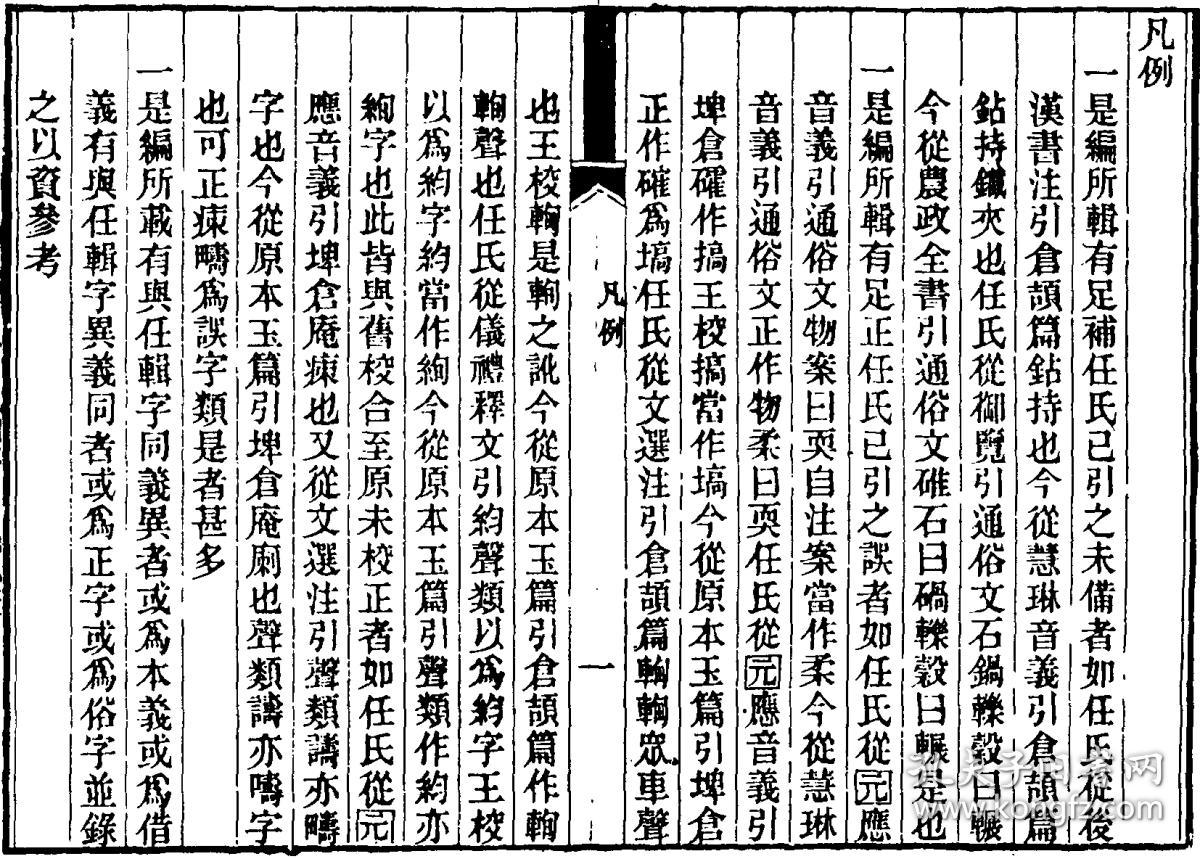 凡例
一是編所輯有足補任氏已引之未備者如任氏從後
漢書注引倉頡篇鉆持也今從慧琳音義引倉頡篇
鉆持鐵夾也任氏從御覽引通俗文石碢轢穀曰輾
今從農政全書引通俗文碓石曰碢轢穀曰輾是也
一是編所輯有足正任氏已引之誤者如任氏從元應
音義引通俗文物案曰耎自注案當作柔今從慧琳
音義引通俗文正作物柔曰耎任氏從元應音義引
埤倉礭作搞王校搞當作塙今從原本玉篇引埤倉
正作礭為塙任氏從文選注引倉頡篇輷輷眾車聲
凡例
一
也王校輷是軥之訛今從原本玉篇引倉頡篇作輷
輷聲也任氏從儀禮釋文引約聲類以為約字王校
以為約字約當作絇今從原本玉篇引聲類作約亦
絇字也此皆與舊校合至原未校正者如任氏從元
應音義引埤倉庵㾊也又從文選注引聲類譸亦疇
字也今從原本玉篇引埤倉庵廁也聲類譸亦嚋字
也可正㾊疇為誤字類是者甚多
一是編所載有與任輯字同義異者或為本義或為借
義有與任輯字異義同者或為正字或為俗字並錄
之以資參考
孔夫子旧书网
www.kongfz.com